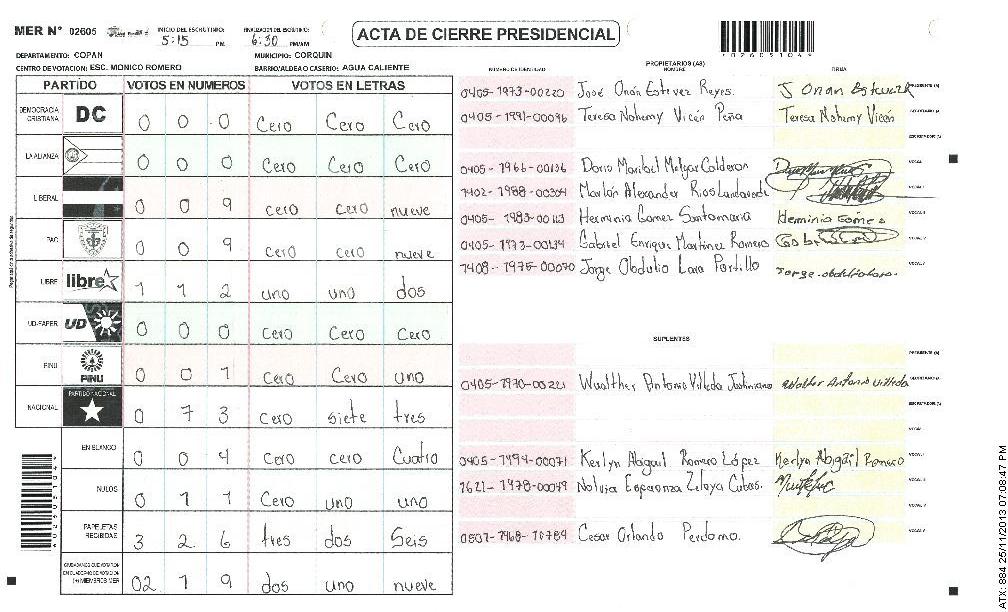 MER Nº 02605 INICIO DEL ESCRUTINIO: 5:15 PM FINALIZACION DEL ESCRUTINIO: 6:30 PM/AM
ACTA DE CIERRE PRESIDENCIAL
DEPARTAMENTO: COPAN MUNICIPIO: CORQUIN
CENTRO DE VOTACION: ESC. MONICO ROMERO BARRIO/ALDEA O CASERIO: AGUA CALIENTE
PARTIDO VOTOS EN NUMEROS VOTOS EN LETRAS
DEMOCRACIA CRISTIANA DC 0 0 0 Cero Cero Cero
LA ALIANZA 0 0 0 Cero Cero Cero
LIBERAL 0 0 9 cero cero nueve
PAC 0 0 9 cero cero nueve
LIBRE libre 1 1 2 uno uno dos
UD-FAPER UD 0 0 0 Cero Cero Cero
PINU PINU 0 0 1 Cero Cero uno
NACIONAL PARTIDO NACIONAL 0 7 3 cero siete tres
EN BLANCO 0 0 4 cero cero Cuatro
NULOS 0 1 1 Cero uno uno
PAPELETAS RECIBIDAS 3 2 6 tres dos Seis
CIUDADANOS QUE VOTARON EN CUADERNO DE VOTACION (+) MIEMBROS MER 02 1 9 dos uno nueve
PROPIETARIOS (AS)
NUMERO DE IDENTIDAD NOMBRE FIRMA
0405-1973-00220 José Onán Estevez Reyes. J Onan PRESIDENTE (A)
0405-1991-00096 Teresa Nohemy Vicén Peña Teresa Nohemy Vicén
SECRETARIO (A)
0405-1966-00136 Doris Maribel Melgar Calderon
1402-1988-00304 Marlon Alexander Rios
0405-1983-00113 Herminia Gomez Santamaria Herminia Gómes
0405-1973-00134 Gabriel Enrique Martinez Romero
1408-1975-00070 Jorge Obdulio Lara Portillo
SUPLENTES
PRESIDENTE (A)
0405-1970-00221 Wualther Antonio Villeda Justiniano Walter Antonio Villeda
0405-1994-00071 Kerlyn Abigail Romero López Kerlyn Abigail Romero
1621-1978-00049 Esperanza Zelaya
0501-1968-10789 Cesar Orlando Perdomo.
ATX: 884 25/11/2013 07:08:47 PM